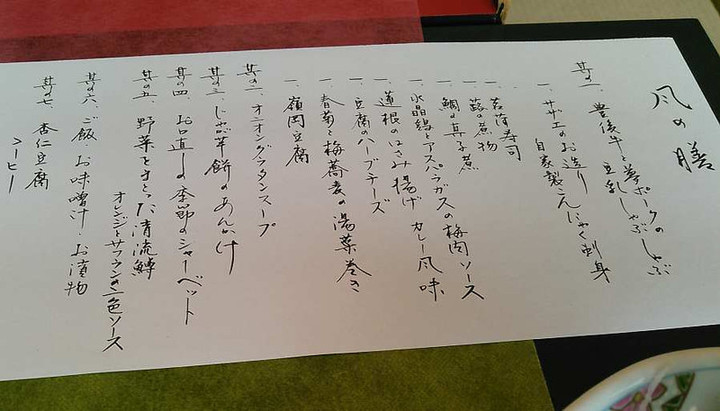 風の膳
其の一、豊後牛と夢ポークのしゃぶしゃぶ
豆乳しゃぶ
一、サザエのお造り
自家製こんにゃく刺身
一、若蒲寿司
一、蕗の煮物
一、鯛の真子煮
一、水晶鶏とアスパラガスの梅肉ソース
一、蓮根のはさみ揚げ カレー風味
一、豆腐のハーブチーズ
一、春菊と梅蕎麦の湯葉巻き
一、嶺岡豆腐
其の二、オニオングラタンスープ
其の三、じゃが芋餅のあんかけ
其の四、お口直しの季節のシャーベット
其の五、野菜をまとった清流鱒
オレンジとサフランの二色ソース
其の六、ご飯・お味噌汁・お漬物
其の七、杏仁豆腐
コーヒー